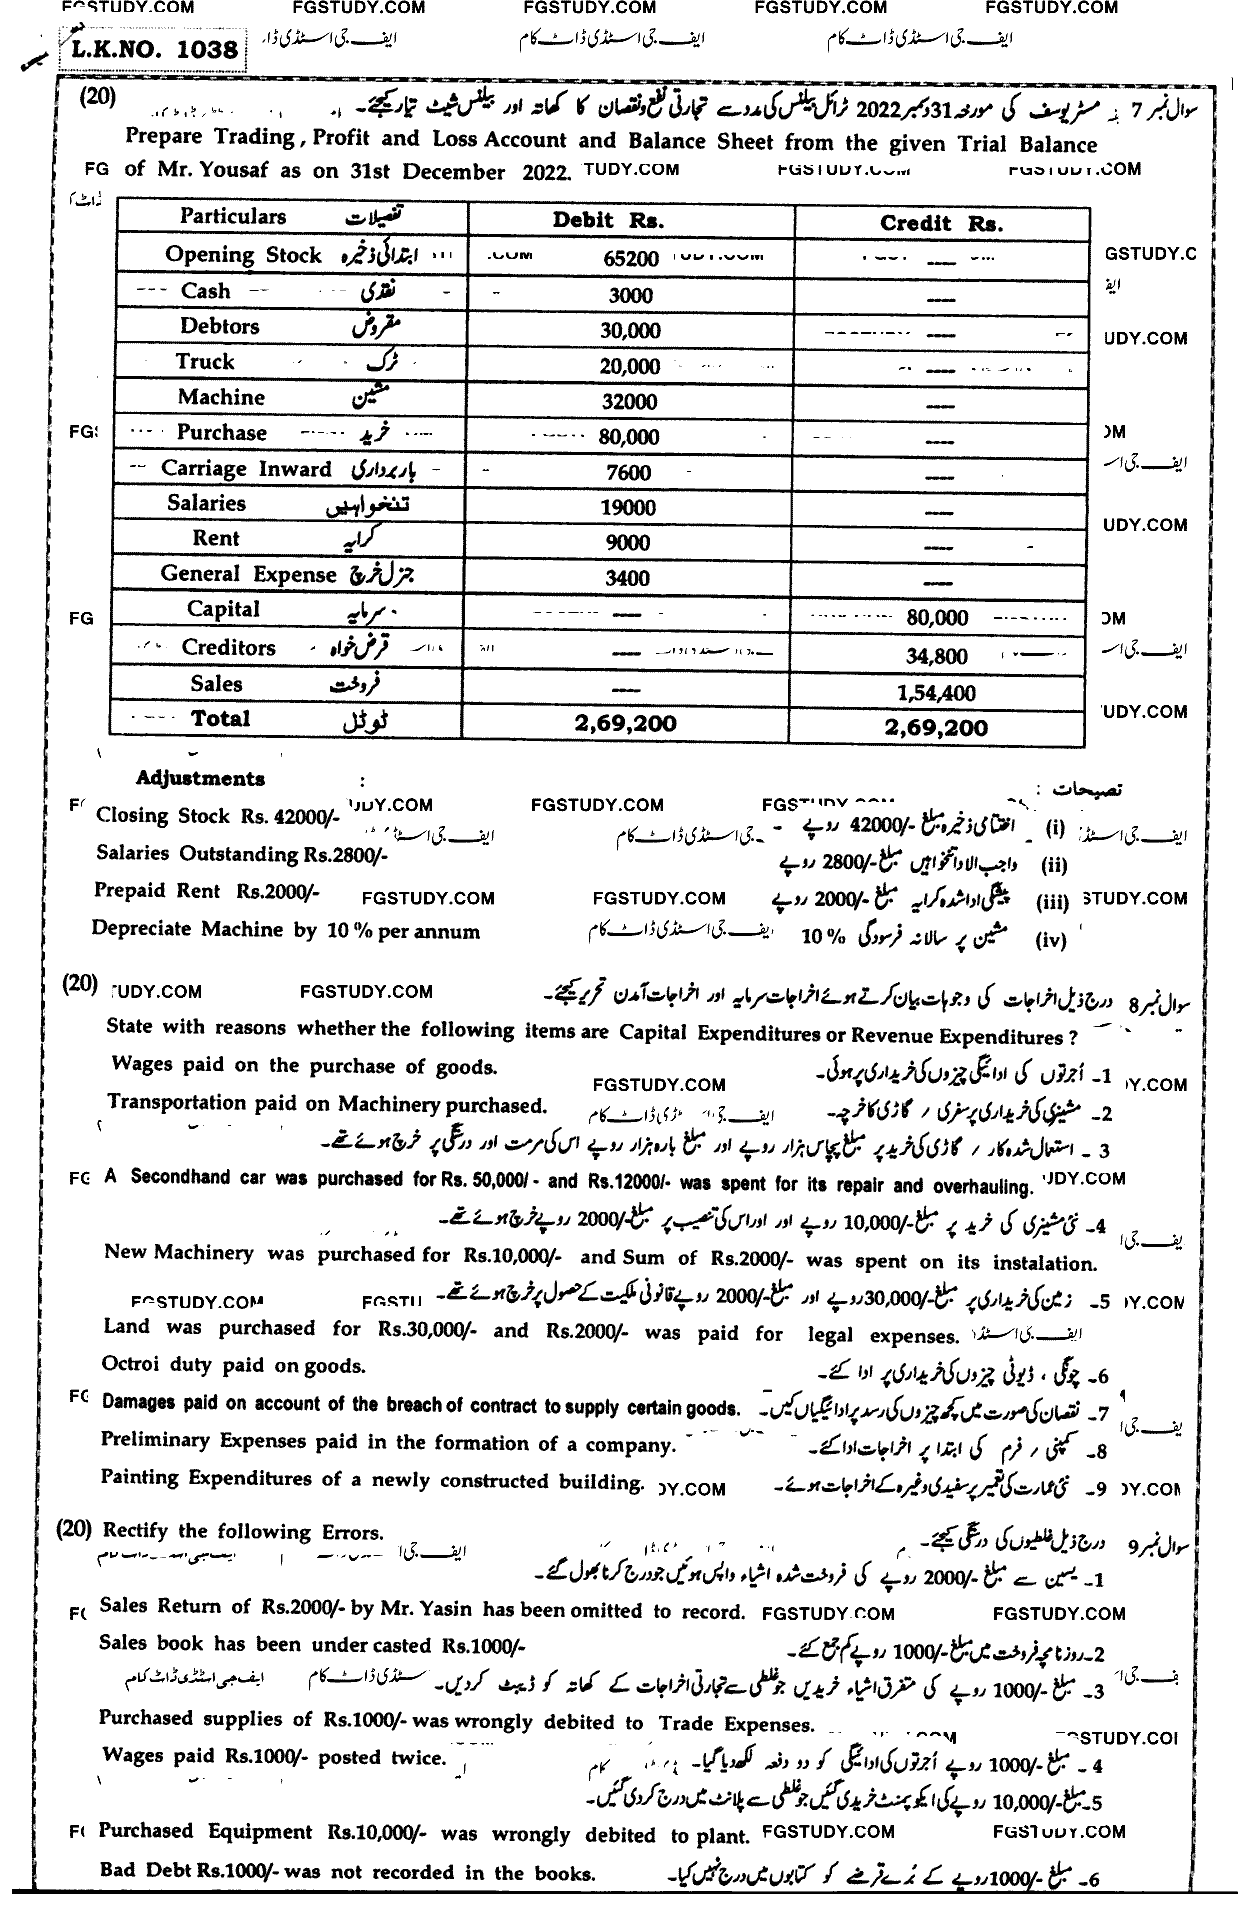 FGSTUDY.COM FGSTUDY.COM FGSTUDY.COM FGSTUDY.COM FGSTUDY.COM
L.K.NO. 1038 ایف جی اسٹڈی ڈاٹ کام ایف جی اسٹڈی ڈاٹ کام
(20) سوال نمبر 7 مسٹر یوسف کی مورخہ 31 دسمبر 2022 ٹرائل بیلنس کی مدد سے تجارتی نفع و نقصان کا کھاتہ اور بیلنس شیٹ تیار کیجئے۔
Prepare Trading, Profit and Loss Account and Balance Sheet from the given Trial Balance
FG of Mr. Yousaf as on 31st December 2022. TUDY.COM FGSTUDY.COM FGSTUDY.COM
Particulars تفصیلات Debit Rs. Credit Rs.
Opening Stock ابتدائی ذخیرہ .COM 65200 TUDY.COM — GSTUDY.C
Cash نقدی 3000 —
Debtors مقروض 30,000 — UDY.COM
Truck ٹرک 20,000 —
Machine مشین 32000 —
Purchase خرید 80,000 —
Carriage Inward باربرداری 7600 —
Salaries تنخواہیں 19000 — UDY.COM
Rent کرایہ 9000 —
General Expense جنرل خرچ 3400 —
FG Capital سرمایہ — 80,000 OM
Creditors قرض خواہ — 34,800
Sales فروخت — 1,54,400
Total ٹوٹل 2,69,200 2,69,200 UDY.COM
Adjustments : تصیحات :
UDY.COM FGSTUDY.COM
Closing Stock Rs. 42000/- (i) اختتامی ذخیرہ مبلغ -/42000 روپے
Salaries Outstanding Rs.2800/- (ii) واجب الادا تنخواہیں مبلغ -/2800 روپے
Prepaid Rent Rs.2000/- FGSTUDY.COM FGSTUDY.COM (iii) پیشگی ادا شدہ کرایہ مبلغ -/2000 روپے STUDY.COM
Depreciate Machine by 10 % per annum ایف جی اسٹڈی ڈاٹ کام (iv) مشین پر سالانہ فرسودگی % 10
(20) TUDY.COM FGSTUDY.COM سوال نمبر 8 درج ذیل اخراجات کی وجوہات بیان کرتے ہوئے اخراجات سرمایہ اور اخراجات آمدن تحریر کیجئے۔
State with reasons whether the following items are Capital Expenditures or Revenue Expenditures ?
Wages paid on the purchase of goods. 1۔ اُجرتوں کی ادائیگی چیزوں کی خریداری پر ہوئی۔
FGSTUDY.COM Y.COM
Transportation paid on Machinery purchased. ایف جی اسٹڈی ڈاٹ کام 2۔ مشینری کی خریداری پر سفری / گاڑی کا خرچہ۔
3۔ استعمال شدہ کار / گاڑی کی خرید پر مبلغ پچاس ہزار روپے اور مبلغ بارہ ہزار روپے اس کی مرمت اور درستگی پر خرچ ہوئے تھے۔
A Secondhand car was purchased for Rs. 50,000/- and Rs.12000/- was spent for its repair and overhauling. UDY.COM
4۔ نئی مشینری کی خرید پر مبلغ -/10,000 روپے اور اور اس کی تنصیب پر مبلغ -/2000 روپے خرچ ہوئے تھے۔
New Machinery was purchased for Rs.10,000/- and Sum of Rs.2000/- was spent on its instalation.
FGSTUDY.COM FGSTU 5۔ زمین کی خریداری پر مبلغ -/30,000 روپے اور مبلغ -/2000 روپے قانونی ملکیت کے حصول پر خرچ ہوئے تھے۔ DY.COM
Land was purchased for Rs.30,000/- and Rs.2000/- was paid for legal expenses.
Octroi duty paid on goods. 6۔ چونگی ، ڈیوٹی چیزوں کی خریداری پر ادا کئے۔
Damages paid on account of the breach of contract to supply certain goods. 7۔ نقصان کی صورت میں کچھ چیزوں کی رسد پر ادائیگیاں کیں۔
Preliminary Expenses paid in the formation of a company. 8۔ کمپنی / فرم کی ابتدا پر اخراجات ادا کئے۔
Painting Expenditures of a newly constructed building. DY.COM 9۔ نئی عمارت کی تعمیر پر سفیدی وغیرہ کے اخراجات ہوئے۔
(20) Rectify the following Errors. سوال نمبر 9 درج ذیل غلطیوں کی درستگی کیجئے۔
1۔ یسین سے مبلغ -/2000 روپے کی فروخت شدہ اشیاء واپس ہوئیں جو درج کرنا بھول گئے۔
Sales Return of Rs.2000/- by Mr. Yasin has been omitted to record. FGSTUDY.COM FGSTUDY.COM
Sales book has been under casted Rs.1000/- 2۔ روزنامچہ فروخت میں مبلغ -/1000 روپے کم جمع کئے۔
3۔ مبلغ -/1000 روپے کی متفرق اشیاء خریدیں جو غلطی سے تجارتی اخراجات کے کھاتہ کو ڈیبٹ کر دیں۔
Purchased supplies of Rs.1000/- was wrongly debited to Trade Expenses.
Wages paid Rs.1000/- posted twice. 4۔ مبلغ -/1000 روپے اُجرتوں کی ادائیگی کو دو دفعہ لکھ دیا گیا۔
5۔ مبلغ -/10,000 روپے کی ایکوپمنٹ خریدی گئیں جو غلطی سے پلانٹ میں درج کر دی گئیں۔
Purchased Equipment Rs.10,000/- was wrongly debited to plant. FGSTUDY.COM FGSTUDY.COM
Bad Debt Rs.1000/- was not recorded in the books. 6۔ مبلغ -/1000 روپے کے بُرے قرضے کو کتابوں میں درج نہیں کیا۔